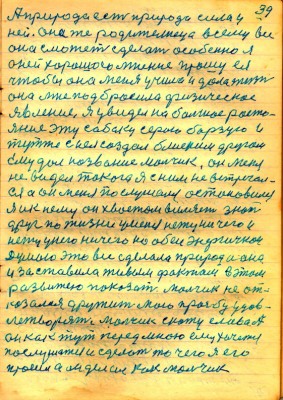 39
А природа ест природа сила у
ней. Она же родителница всему вс
она сможет сделат особенно я
о ней хорошого мнение прошу ея
чтобы она меня учила и
она мне подбросила физическое
явление, я увидел на болшое растоя
яние эту собаку серою борзую и
тут я с нея создал близкий другом
ему дал название молчик, он меня
не видел такога я с ним не встричал
ся а он меня послушал остоновился
я и к нему он хвостом виляет этот
друг по жизни у меня нету ничего и
нету у него ничего но обеи энергичнои
думаю это все сделало природа она
и заставила живым фактам в этом
развитею показат. молчик не от
казался дружит мою прозбу удов
летворят. молчик скожу ему
он как тут передо мною ему хочется
послушати и сделат то чего я его
просил а он делал как молчик